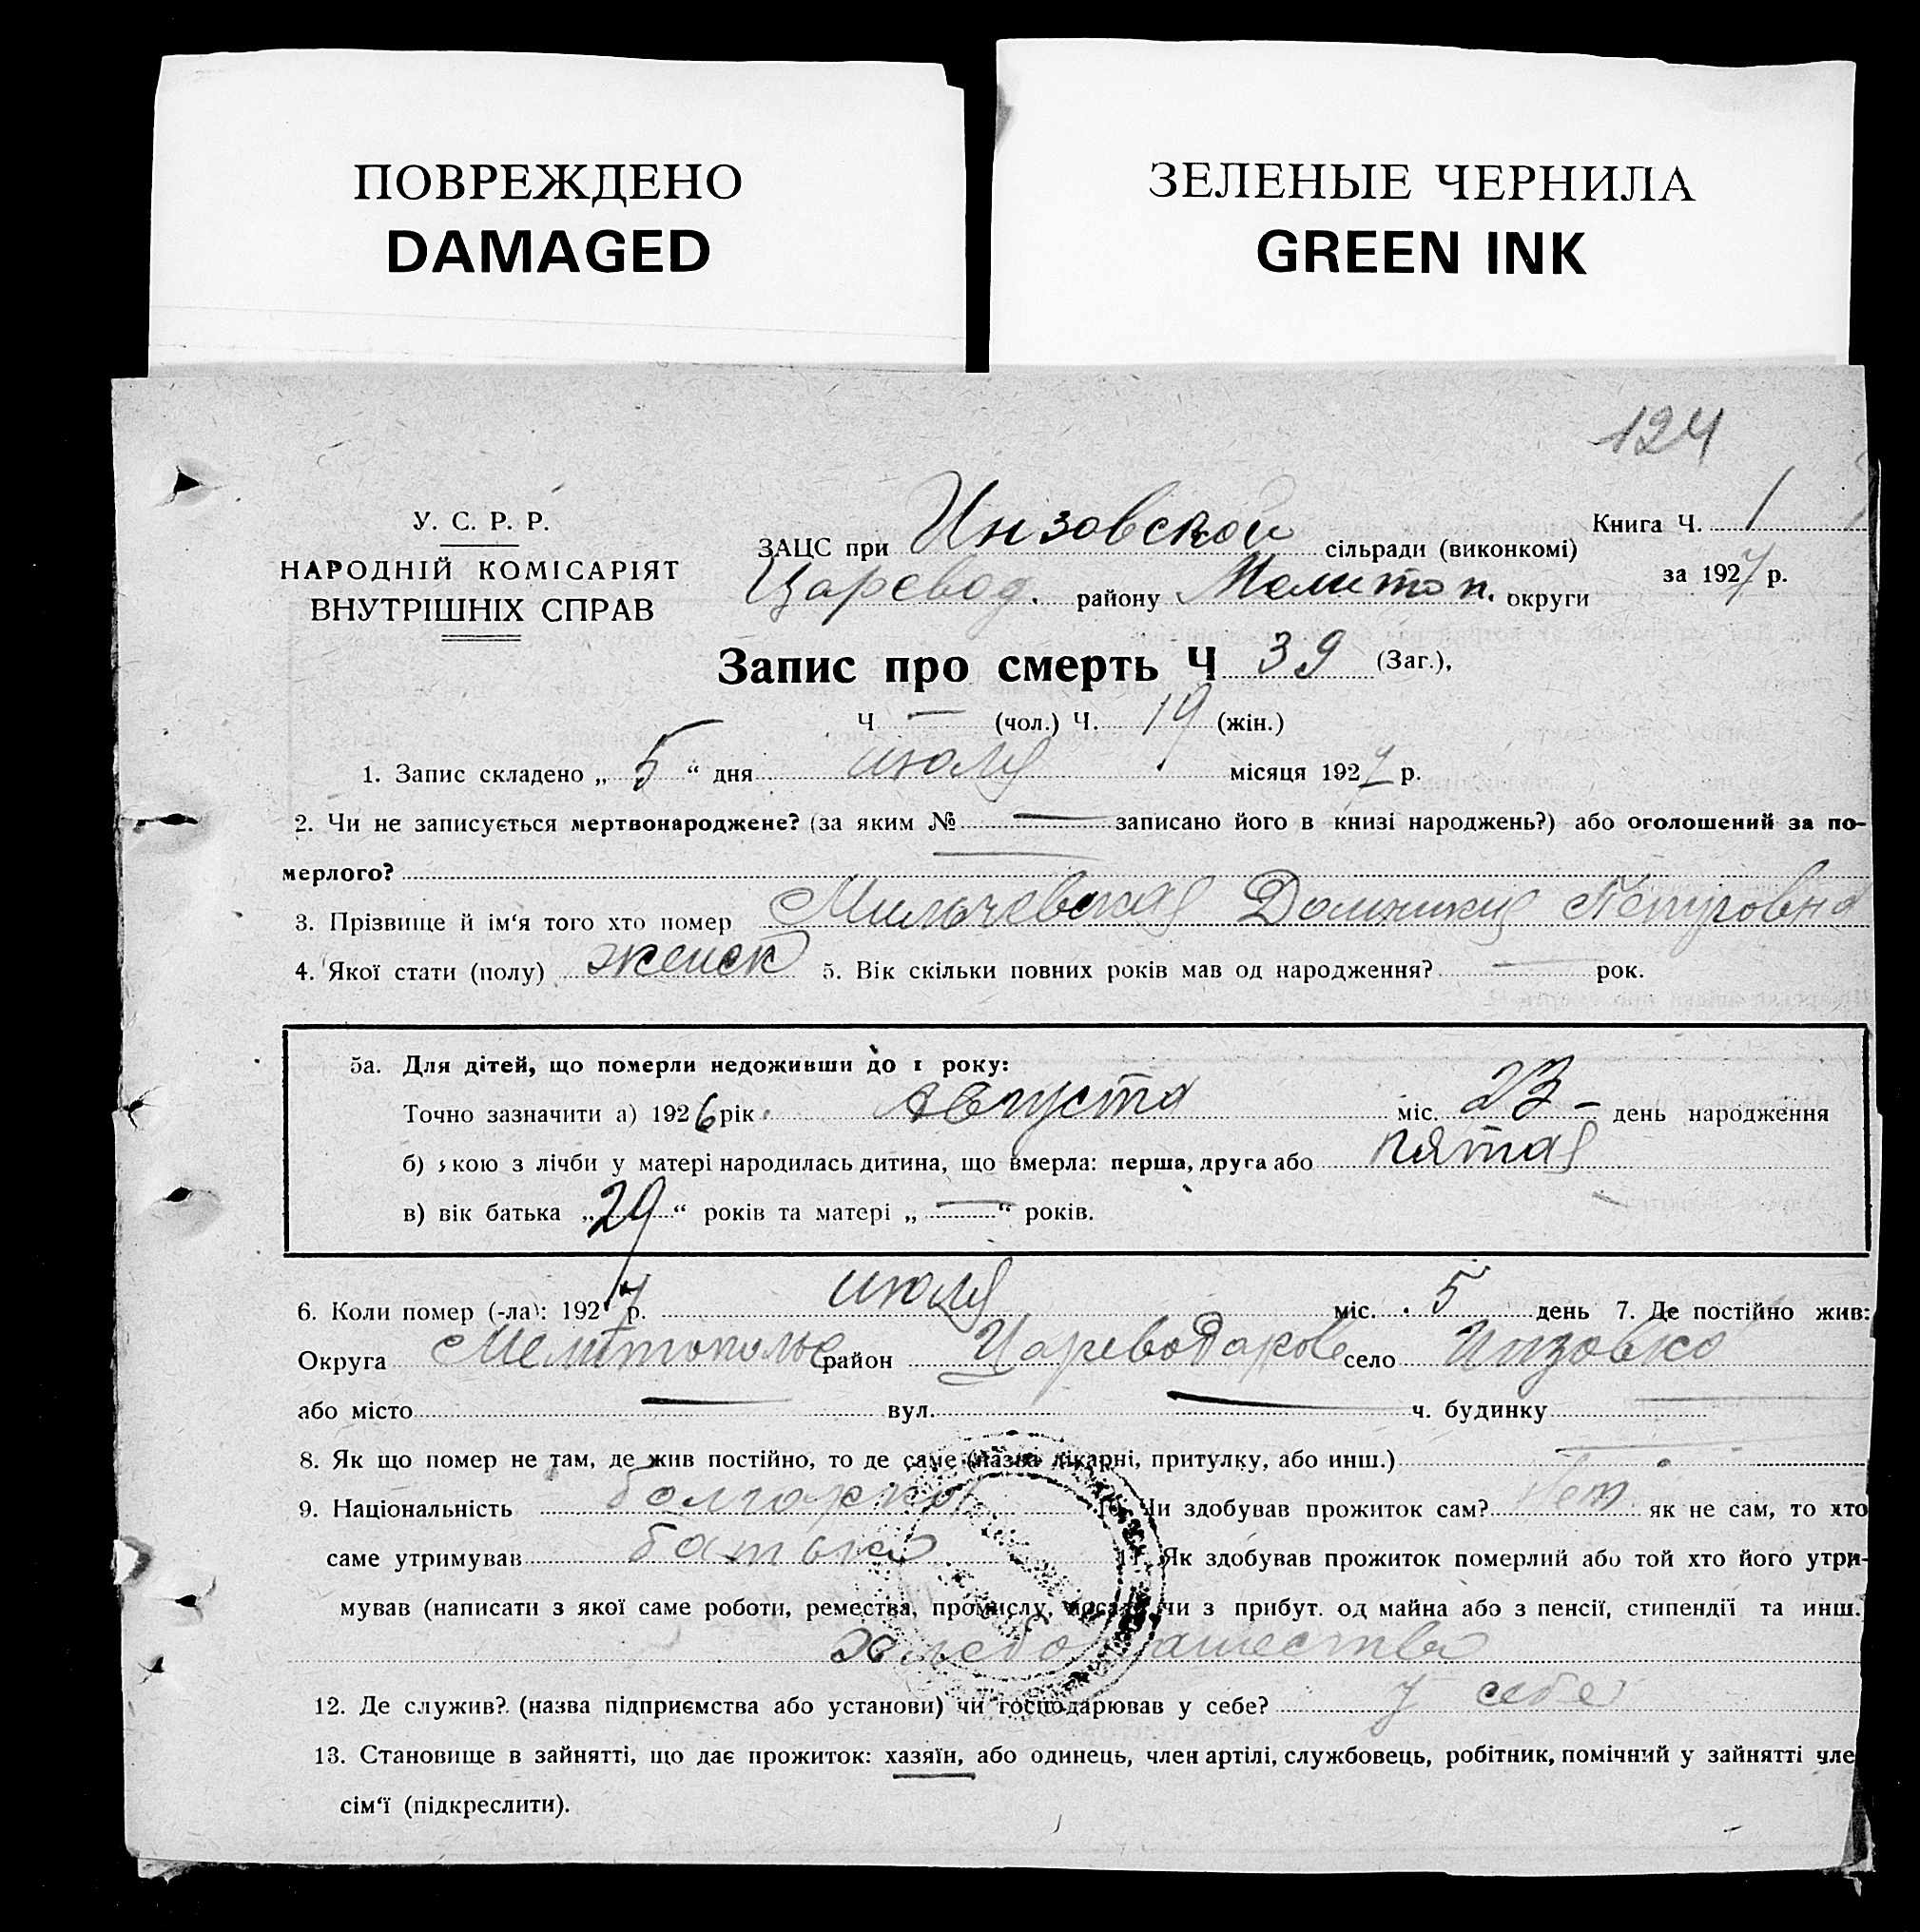 ПОВРЕЖДЕНО
DAMAGED
ЗЕЛЕНЫЕ ЧЕРНИЛА
GREEN INK
124
У. С. Р. Р.
НАРОДНІЙ КОМІСАРІЯТ
ВНУТРІШНІХ СПРАВ
Книга Ч. 1
за 1927 р.
ЗАЦС при Инзовской сільради (виконкомі)
Царевод. району Мелитоп. округи
Запис про смерть Ч 39 (Заг.),
Ч — (чол.) Ч. 19 (жін.)
1. Запис складено „ 5 “ дня июля місяця 1927 р.
2. Чи не записується мертвонароджене? (за яким № — записано його в книзі народжень?) або оголошений за по-
мерлого? —
3. Прізвище й ім‘я того хто помер Мильчевская Домникия Петровна
4. Якої стати (полу) женск 5. Вік скільки повних років мав од народження? — рок.
5а. Для дітей, що померли недоживши до 1 року:
Точно зазначити а) 1926 рік Августа міс. 23 – день народження
б) якою з лічби у матері народилась дитина, що вмерла: перша, друга або пятая
в) вік батька „29“ років та матері „—“ років.
6. Коли помер (-ла): 1927 р. июля міс. 5 день 7. Де постійно жив:
Округа Мелитопольс район Цареводарове село Инзовка
або місто — вул. — ч. будинку —
8. Як що помер не там, де жив постійно, то де саме (назва лікарні, притулку, або инш.) —
9. Національність болгарка 10. Чи здобував прожиток сам? Нет як не сам, то хто
саме утримував батька 11. Як здобував прожиток померлий або той хто його утри-
мував (написати з якої саме роботи, ремества, промислу, посади чи з прибут. од майна або з пенсії, стипендії та инш.
хлебопашества
12. Де служив? (назва підприємства або установи) чи господарював у себе? у себе
13. Становище в зайнятті, що дає прожиток: хазяїн, або одинець, член артілі, службовець, робітник, помічний у зайнятті чле
сім‘ї (підкреслити).